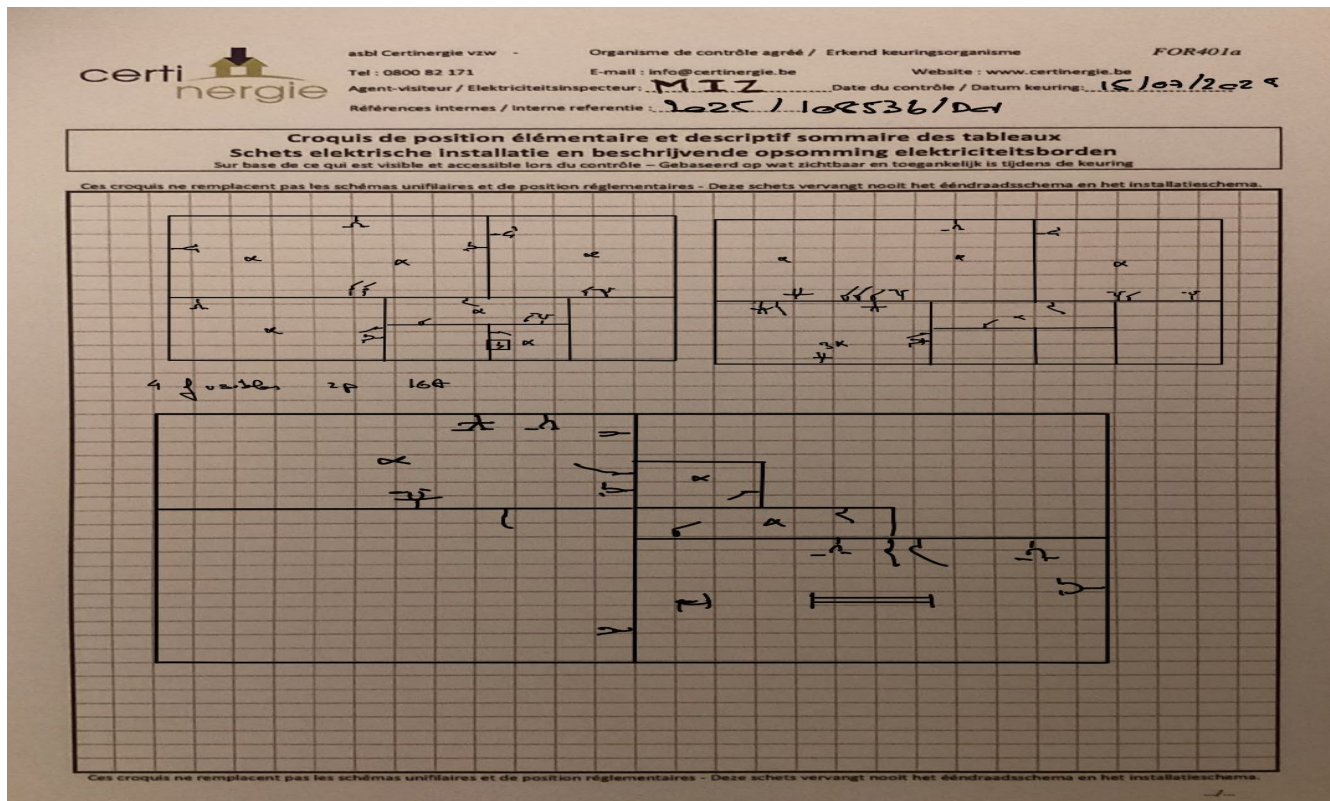 certinergie
asbl Certinergie vzw - Organisme de contrôle agréé / Erkend keuringsorganisme FOR401a
Tel : 0800 82 171 E-mail : info@certinergie.be Website : www.certinergie.be
Agent-visiteur / Elektriciteitsinspecteur: MIZ Date du contrôle / Datum keuring: 15/07/202
Références internes / Interne referentie : 2025 / 108536/
Croquis de position élémentaire et descriptif sommaire des tableaux
Schets elektrische installatie en beschrijvende opsomming elektriciteitsborden
Sur base de ce qui est visible et accessible lors du contrôle – Gebaseerd op wat zichtbaar en toegankelijk is tijdens de keuring
Ces croquis ne remplacent pas les schémas unifilaires et de position réglementaires - Deze schets vervangt nooit het ééndraadsschema en het installatieschema.
3x
4 fusibles 2P 16A
Ces croquis ne remplacent pas les schémas unifilaires et de position réglementaires - Deze schets vervangt nooit het ééndraadsschema en het installatieschema.